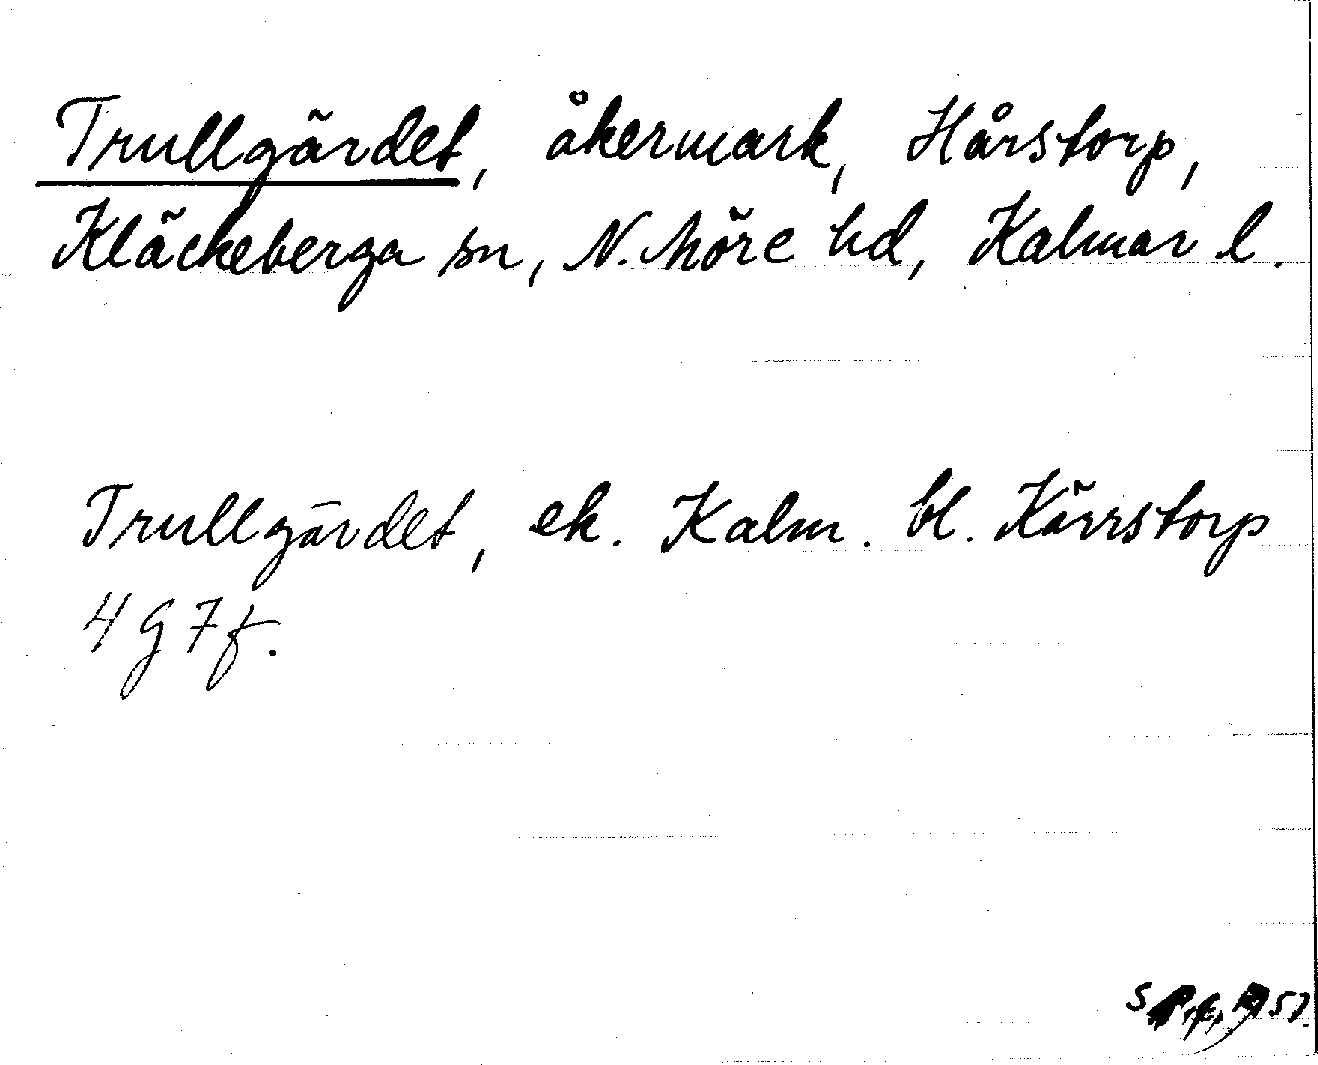 Trullgärdet, åkermark, Hårstorp,
Kläckeberga sn, N. Möre hd, Kalmar l.
Trullgärdet, ek. Kalm. bl. Kärrstorp
4 G 7 f.